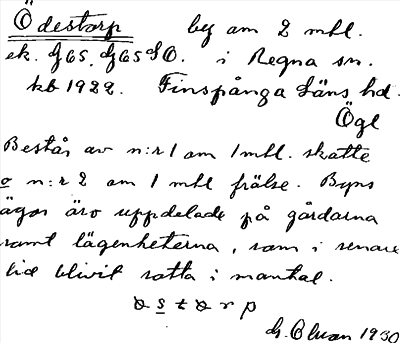 Ödestorp by om 2 mtl.
ek. G 65. i Regna sn.
kb 1922. Finspånga läns hd.
Ögl
Består av n:r 1 om 1 mtl. skatte
o n:r 2 om 1 mtl frälse. Byns
ägor äro uppdelade på gårdarna
samt lägenheterna, som i senare
tid blivit satta i mantal.
ø s t ø r p
1930